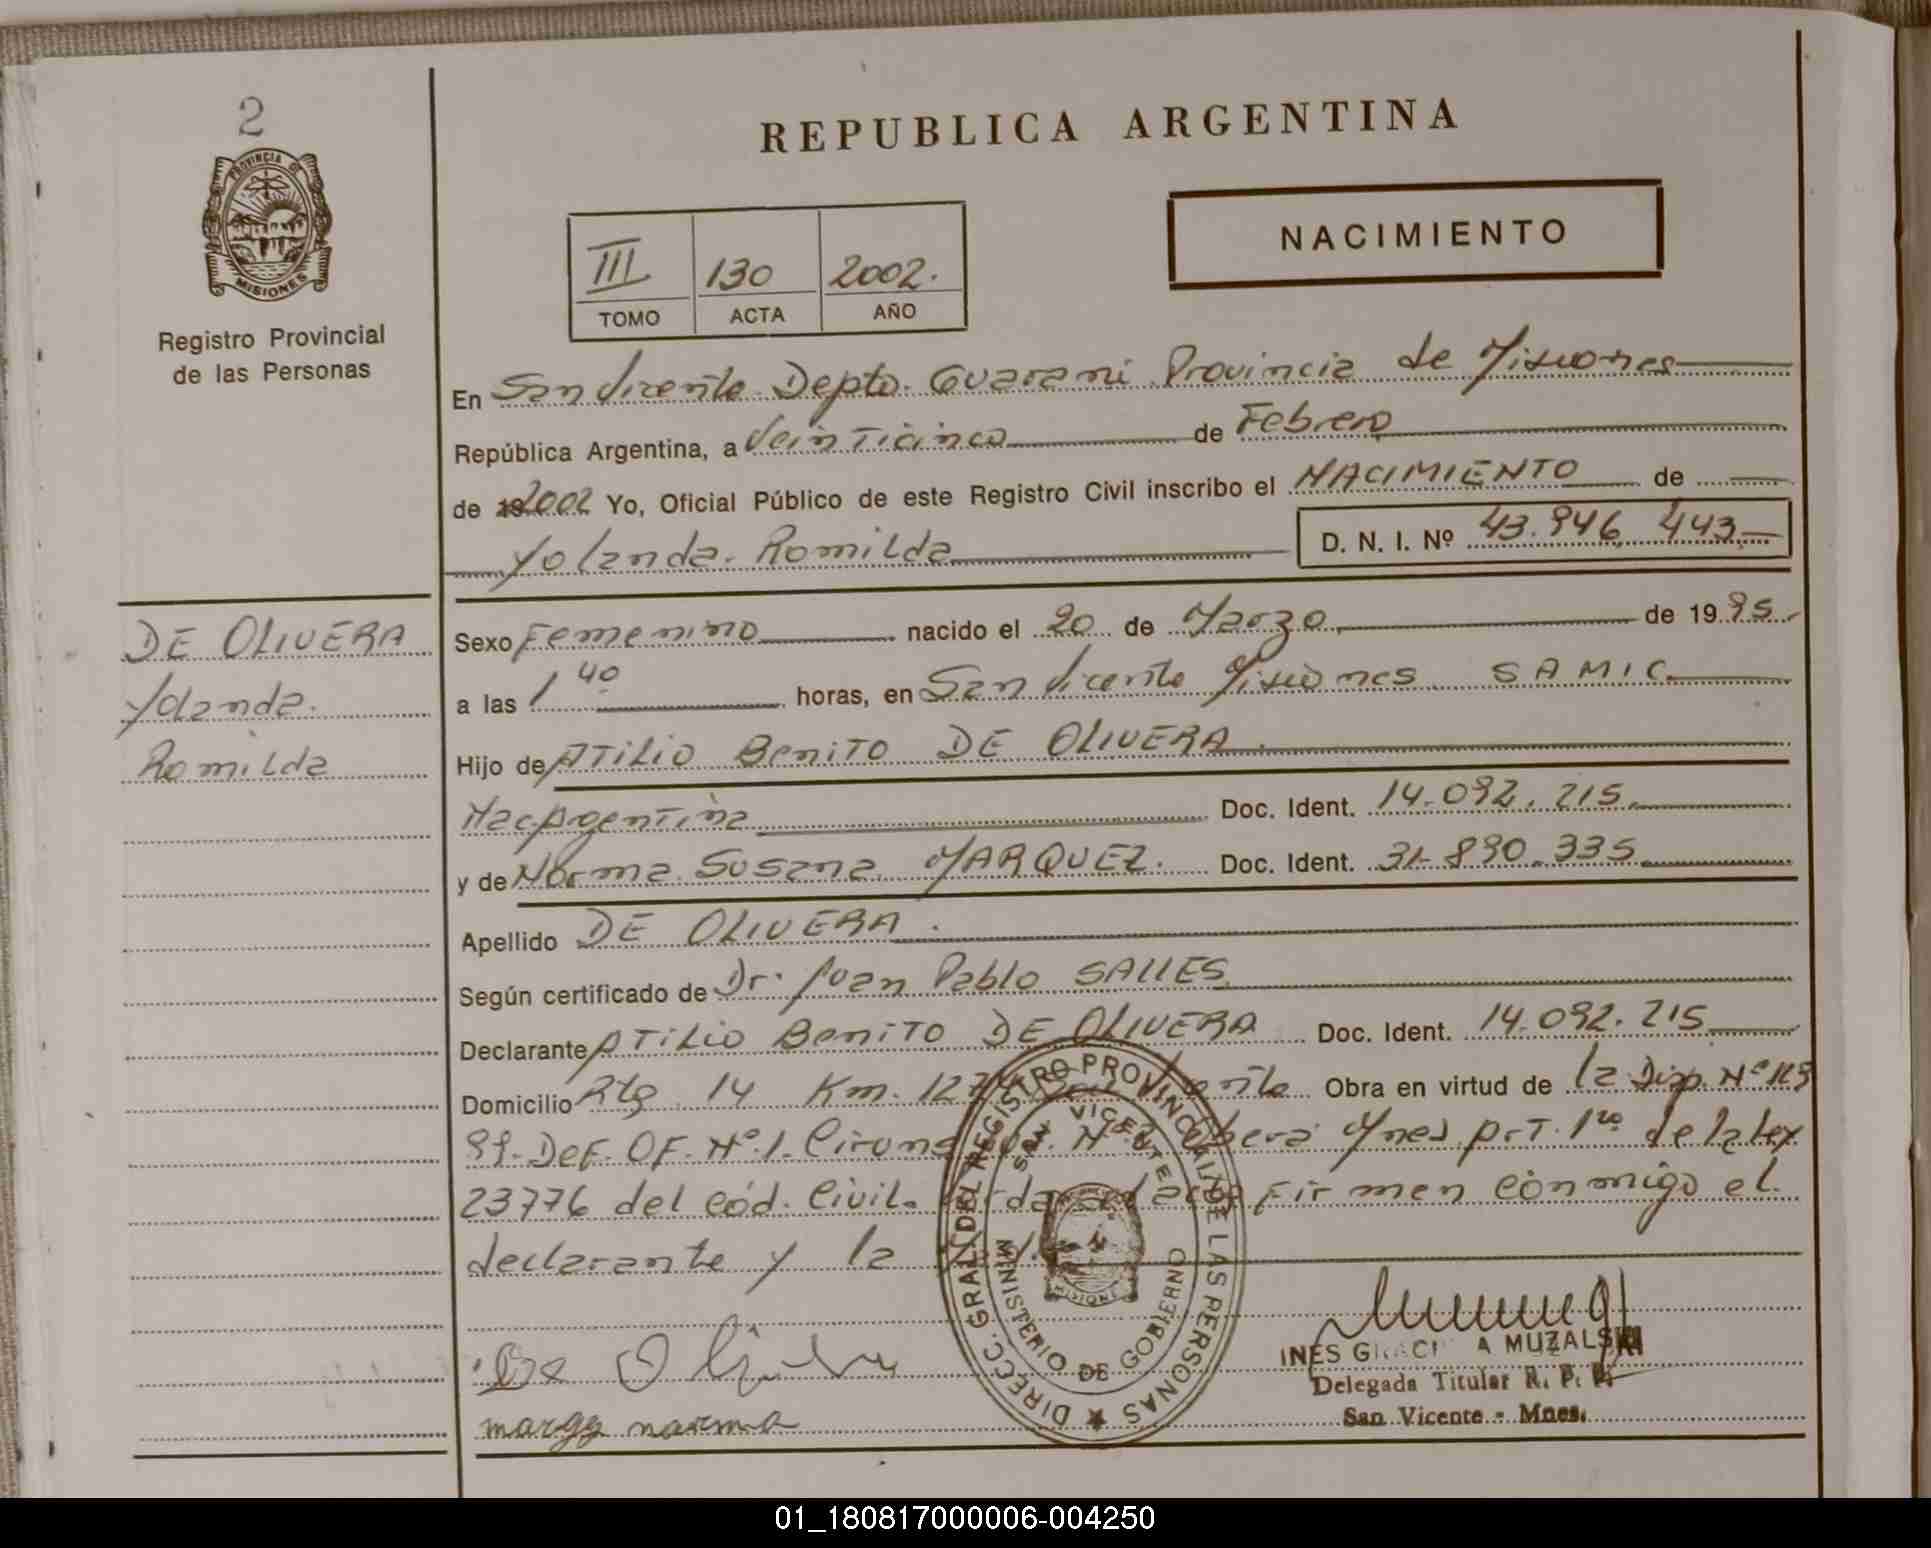 2
PROVINCIA DE
MISIONES
Registro Provincial
de las Personas
REPUBLICA ARGENTINA
NACIMIENTO
III 130 2002.
TOMO ACTA AÑO
En San Vicente Depto. Guarani Provincia de Misiones
República Argentina, a Veinticinco de Febrero
de 19 2002 Yo, Oficial Público de este Registro Civil inscribo el NACIMIENTO de
Yolanda Romilda
D. N. I. Nº 43.946.443
DE OLIVERA
Yolanda
Romilda
Sexo Femenino nacido el 20 de Marzo de 1995
a las 1 40 horas, en San Vicente Misiones SAMIC
Hijo de Atilio Benito DE OLIVERA
Nac Argentina Doc. Ident. 14.092.215
y de Norma Susana MARQUEZ. Doc. Ident. 31.890.335
Apellido DE OLIVERA.
Según certificado de Dr. Juan Pablo SALLES
Declarante Atilio Benito DE OLIVERA Doc. Ident. 14.092.215
Domicilio Rta 14 Km. 1274 Obra en virtud de la Disp. Nº
99. Def. OF. Nº 1. Nº Mnes Art. 1ro de la Ley
23776 del Cód. Civil. Firmen conmigo el
declarante y la
De Olivera
marqz norma
DIRECC. GRAL. DEL REGISTRO PROVINCIAL DE LAS PERSONAS
SAN VICENTE
MINISTERIO DE GOBIERNO
MISIONES
INES GRACI A MUZALSKI
Delegada Titular R. P. P.
San Vicente - Mnes.
01_180817000006-004250